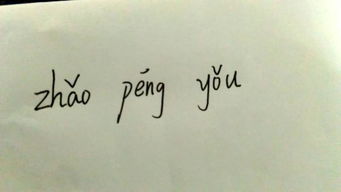 zhǎo péng yǒu